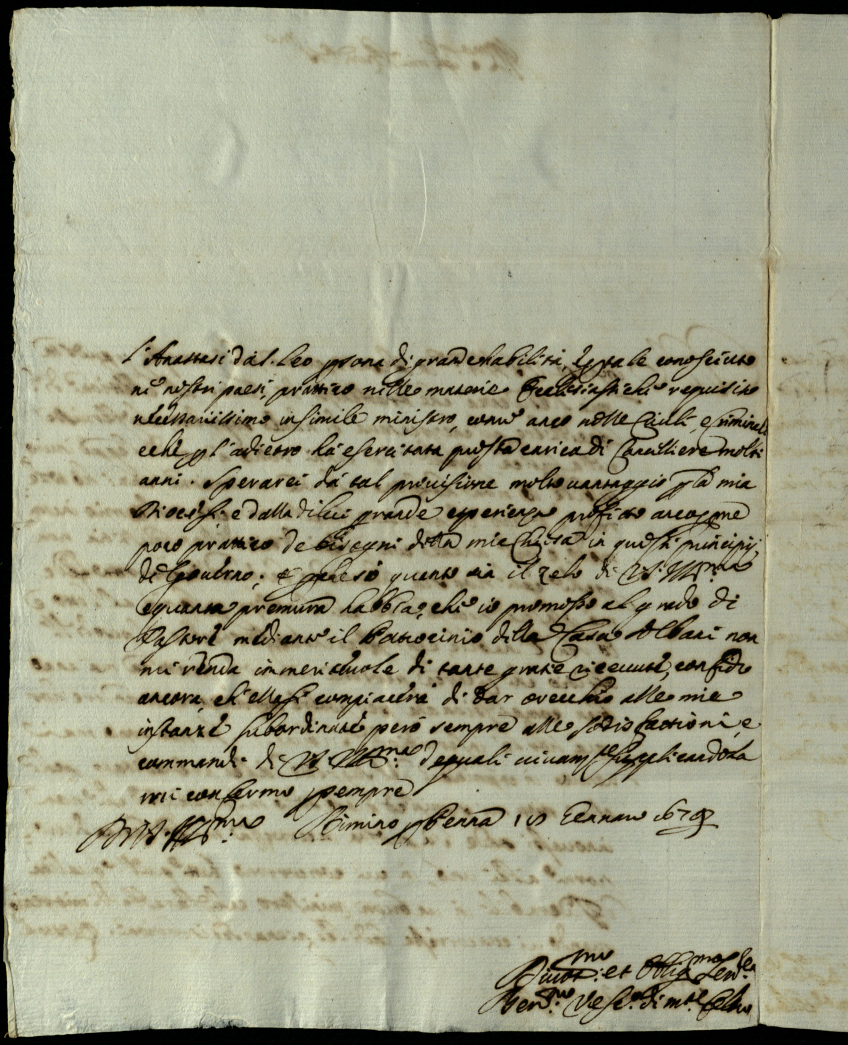 l'Anastasi da S. Leo psona di grande habilità, e tale conosciuto
ne nostri paesi, prattico nelle materie Ecclesiastiche requisito
necessarissimo in simile ministro, come anco nelle Ciuili, e criminali
e che p l'adietro hà esercitata questa carica di Cancelliere molti
anni. Sperarei da tal prouisione molto uantaggio p la mia
Diocesi, e dalla di lui grande esperienza profitto anco p me
poco prattico de bisegni della mia Chiesa in questi principij
di Gouerno; e quanto sia il zelo di V.S. Ill.ma
e quanta premura habbia, che io promosso al grado di
Pastore mediante il Patrocinio della Casa Albani non
mi renda immeriteuole di tante gratie riceuute, confido
ancora, ch'ella si compiacerà di dar orecchio alle mie
instanze subordinate però sempre alle sodisfactioni, e
commandi di V.S. Ill.ma de quali uiuam.te supplicandola
mi confermo p sempre
Di V.S. Ill.ma Rimino p Penna Gennaro
Diuot.mo et Oblig.mo Seru.re
Ber.no Vesc.o di m.te Feltro